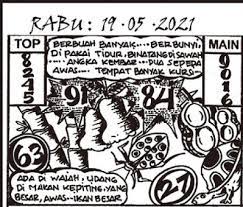 RABU: 19-05-2021
TOP
MAIN
BERBUAH BANYAK.... BERBUNYI,
DI PAKAI TIDUR, BINATANG DI SAWAH
..... ANGKA KEMBAR... DUA SEPEDA
AWAS.... TEMPAT BANYAK KURSI
91
84
63
27
ADA DI WAJAH, UDANG
DI MAKAN KEPITING, YANG
BESAR, AWAS..IKAN BESAR